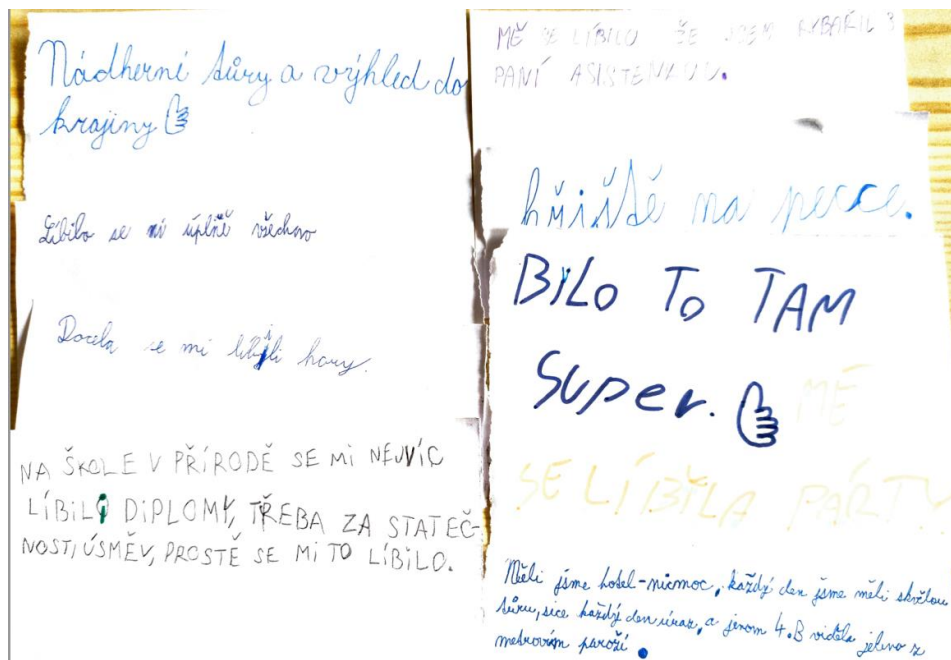 Nádherné túry a výhled do
krajiny
Líbilo se mi úplně všechno
Docela se mi líbili hory.
NA ŠKOLE V PŘÍRODĚ SE MI NEJVÍC
LÍBILO DIPLOMY, TŘEBA ZA STATEČ-
NOST, ÚSMĚV, PROSTĚ SE MI TO LÍBILO.
MĚ SE LÍBILO ŽE JSEM RYBAŘIL S
PANÍ
hřiště na pecce.
BILO TO TAM
SUPER.
MĚ
SE LÍBILA PÁRTY
Měli jsme hotel-nicmoc, každý den jsme měli skvělou
túru, sice každý den úraz, a jenom 4.B viděla jelena z
metrovím paroží.